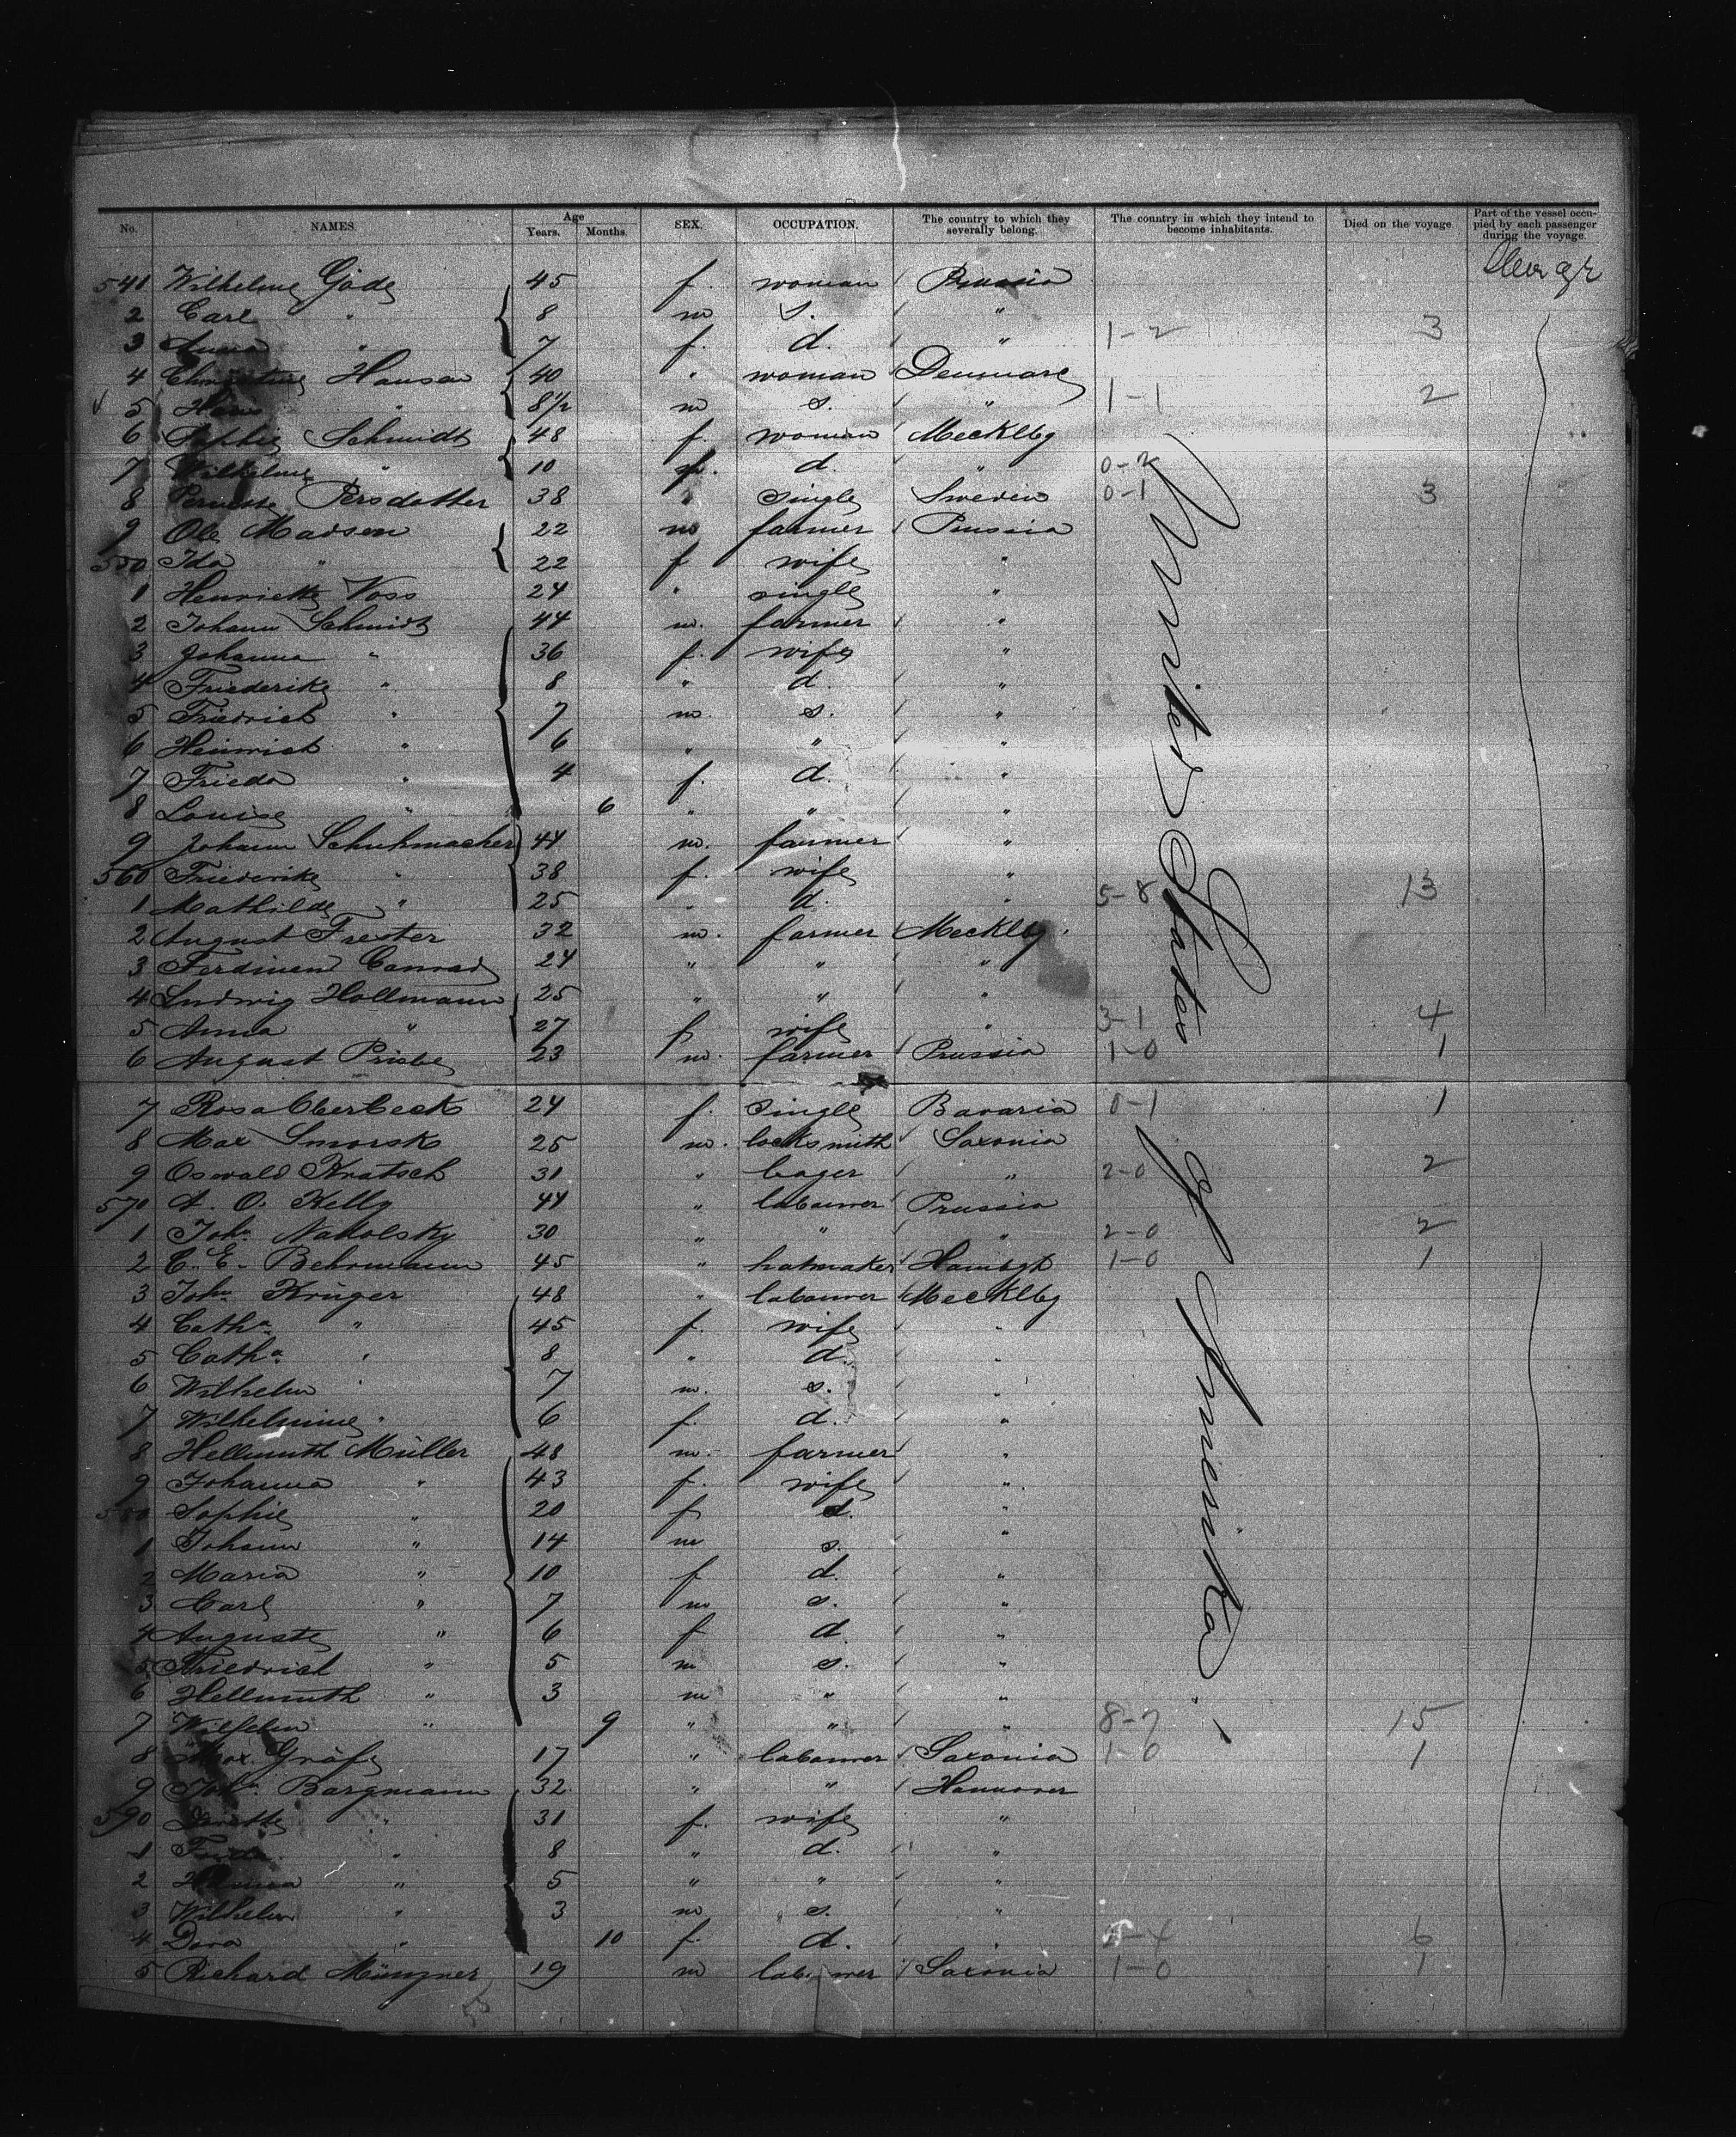 No. NAMES. Age Years. Months. SEX. OCCUPATION. The country to which they severally belong. The country in which they intend to become inhabitants. Died on the voyage. Part of the vessel occupied by each passenger during the voyage.
541 Wilhelmine Gäde 45 f. woman Prussia
2 Carl " 8 m s. "
3 Anna " 7 f. d. " 1-2 3
4 Hansen 40 " woman Denmark
5 Hans " 8½ m s. " 1-1 2
6 Sophie Schmidt 48 f. woman Mecklbg
7 Wilhelmine " 10 f. d. " 0-2
8 Persdotter 38 " single Sweden 0-1 3
9 Ole Madsen 22 m farmer Prussia
550 Ida " 22 f wife "
1 Henriette Voss 24 " single "
2 Johann Schmidt 44 m. farmer "
3 Johanna " 36 f. wife "
4 Friederike " 8 " d. "
5 Friedrich " 7 m. s. "
6 Heinrich " 6 " " "
7 Frieda " 4 f. d. "
8 Louise " 6 " " "
9 Johann Schuhmacher 44 m. farmer "
560 Friederike " 38 f. wife "
1 Mathilde " 25 " d. " 5-8 13
2 August Frester 32 m. farmer Mecklbg
3 Ferdinand Conrad 24 " " "
4 Ludwig Hollmann 25 " " "
5 Anna " 27 f. wife " 3-1 4
6 August Priebe 23 m. farmer Prussia 1-0 1
7 Rosa Oberbeck 24 f. single Bavaria 0-1 1
8 Max 25 m. locksmith Saxonia
9 Oswald Kratsch 31 " " 2-0 2
570 A. O. Kelly 44 " labourer Prussia
1 Joh. Nakolsky 30 " " " 2-0 2
2 C. E. Behrmann 45 " hatmaker Hambgh 1-0 1
3 Joh. Krüger 48 " labourer Mecklbg
4 Catha. " 45 f. wife "
5 Catha. " 8 " d. "
6 Wilhelm " 7 m. s. "
7 Wilhelmine " 6 f. d. "
8 Hellmuth Müller 48 m. farmer "
9 Johanna " 43 f. wife "
580 Sophie " 20 f d. "
1 Johann " 14 m s. "
2 Maria " 10 f d. "
3 Carl " 7 m s. "
4 Auguste " 6 f d. "
5 Friedrich " 5 m s. "
6 Hellmuth " 3 m " "
7 Wilhelm " 9 " " " 8-7 15
8 Max Gräfe 17 " labourer Saxonia 1-0 1
9 Joh. Bargmann 32 " " Hannover
590 " 31 f. wife "
1 Frieda " 8 " d. "
2 " 5 " " "
3 Wilhelm " 3 m s. "
4 Dora " 10 f. d. " 2-4 6
5 Richard Münzner 19 m labourer Saxonia 1-0 1
United States of Amerika.